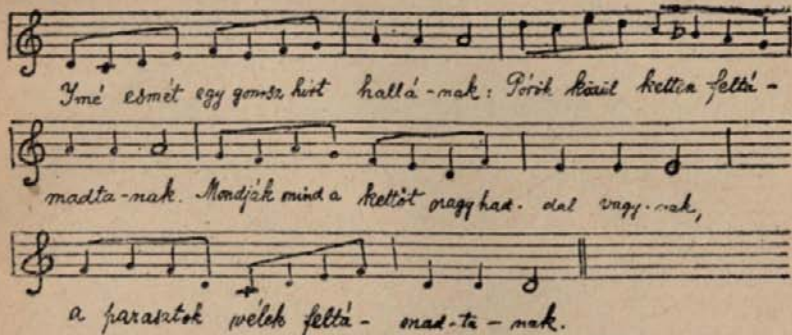 Imé esmét egy gonosz hírt hallá-nak: Pórok közül ketten feltá-
madta-nak. Mondják mind a kettőt nagyhad-dal vagy-nak,
a parasztok vélek feltá-mad-ta-nak.